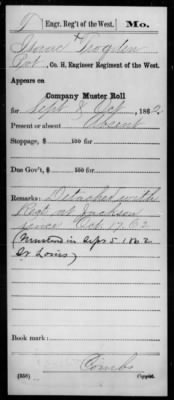 T | Engr. Reg't of the West. | Mo.
Isaac Trogden
Pvt., Co. H, Engineer Regiment of the West.
Appears on
Company Muster Roll
for Sept & Oct, 1862
Present or absent Absent
Stoppage, $ 100 for
Due Gov't, $ 100 for
Remarks: Detached with
Regt at Jackson
since Oct 17, 62
(Mustered in Sept 5 1862
St Louis)
Book mark:
Combs
(358) Copyist.